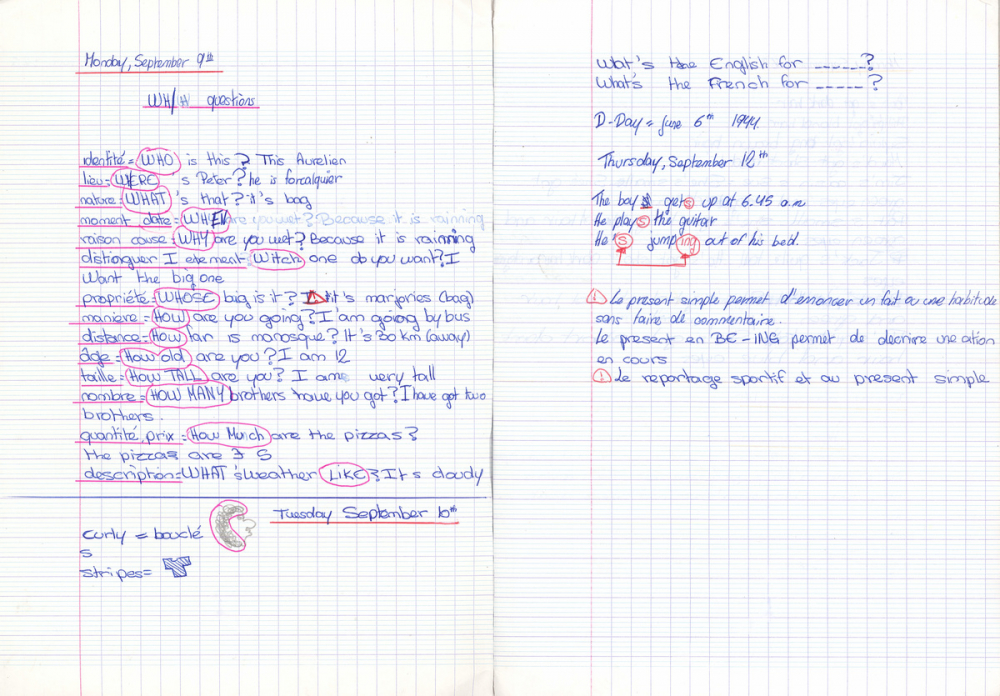 Monday, September 9th
WH/H questions
identité = WHO is this ? This Aurelien
lieu = WERE 's Peter ? he is forcalquier
nature = WHAT 's that ? it's bag
moment, date = WHEN are you wet ? Because it is rainning
raison cause = WHY are you wet ? Because it is rainning
distinguer 1 element = Witch one do you want ? I
want the big one
propriété = WHOSE big is it ? it's marjories (bag)
maniere = How are you going ? I am going by bus
distance = How far is manosque ? It's 30 km (away)
âge = How old are you ? I am 12
taille = How TALL are you ? I am very tall
nombre = HOW MANY brothers have you got ? I have got two
brothers.
quantité, prix = How Much are the pizzas ?
the pizzas are 7 $
description = WHAT 's weather LIKE ? It's cloudy
Tuesday September 10th
curly = bouclé
s
stripes =
Wat's the English for ______ ?
What's the French for _____ ?
D-Day = June 6th 1944.
Thursday, September 12th
The boy gets up at 6.45 a.m
He plays the guitar
He 's jumping out of his bed.
! Le present simple permet d'enoncer un fait ou une habitude
sans faire de commentaire.
Le present en BE-ING permet de decrire une ation
en cours
! Le reportage sportif et au present simple